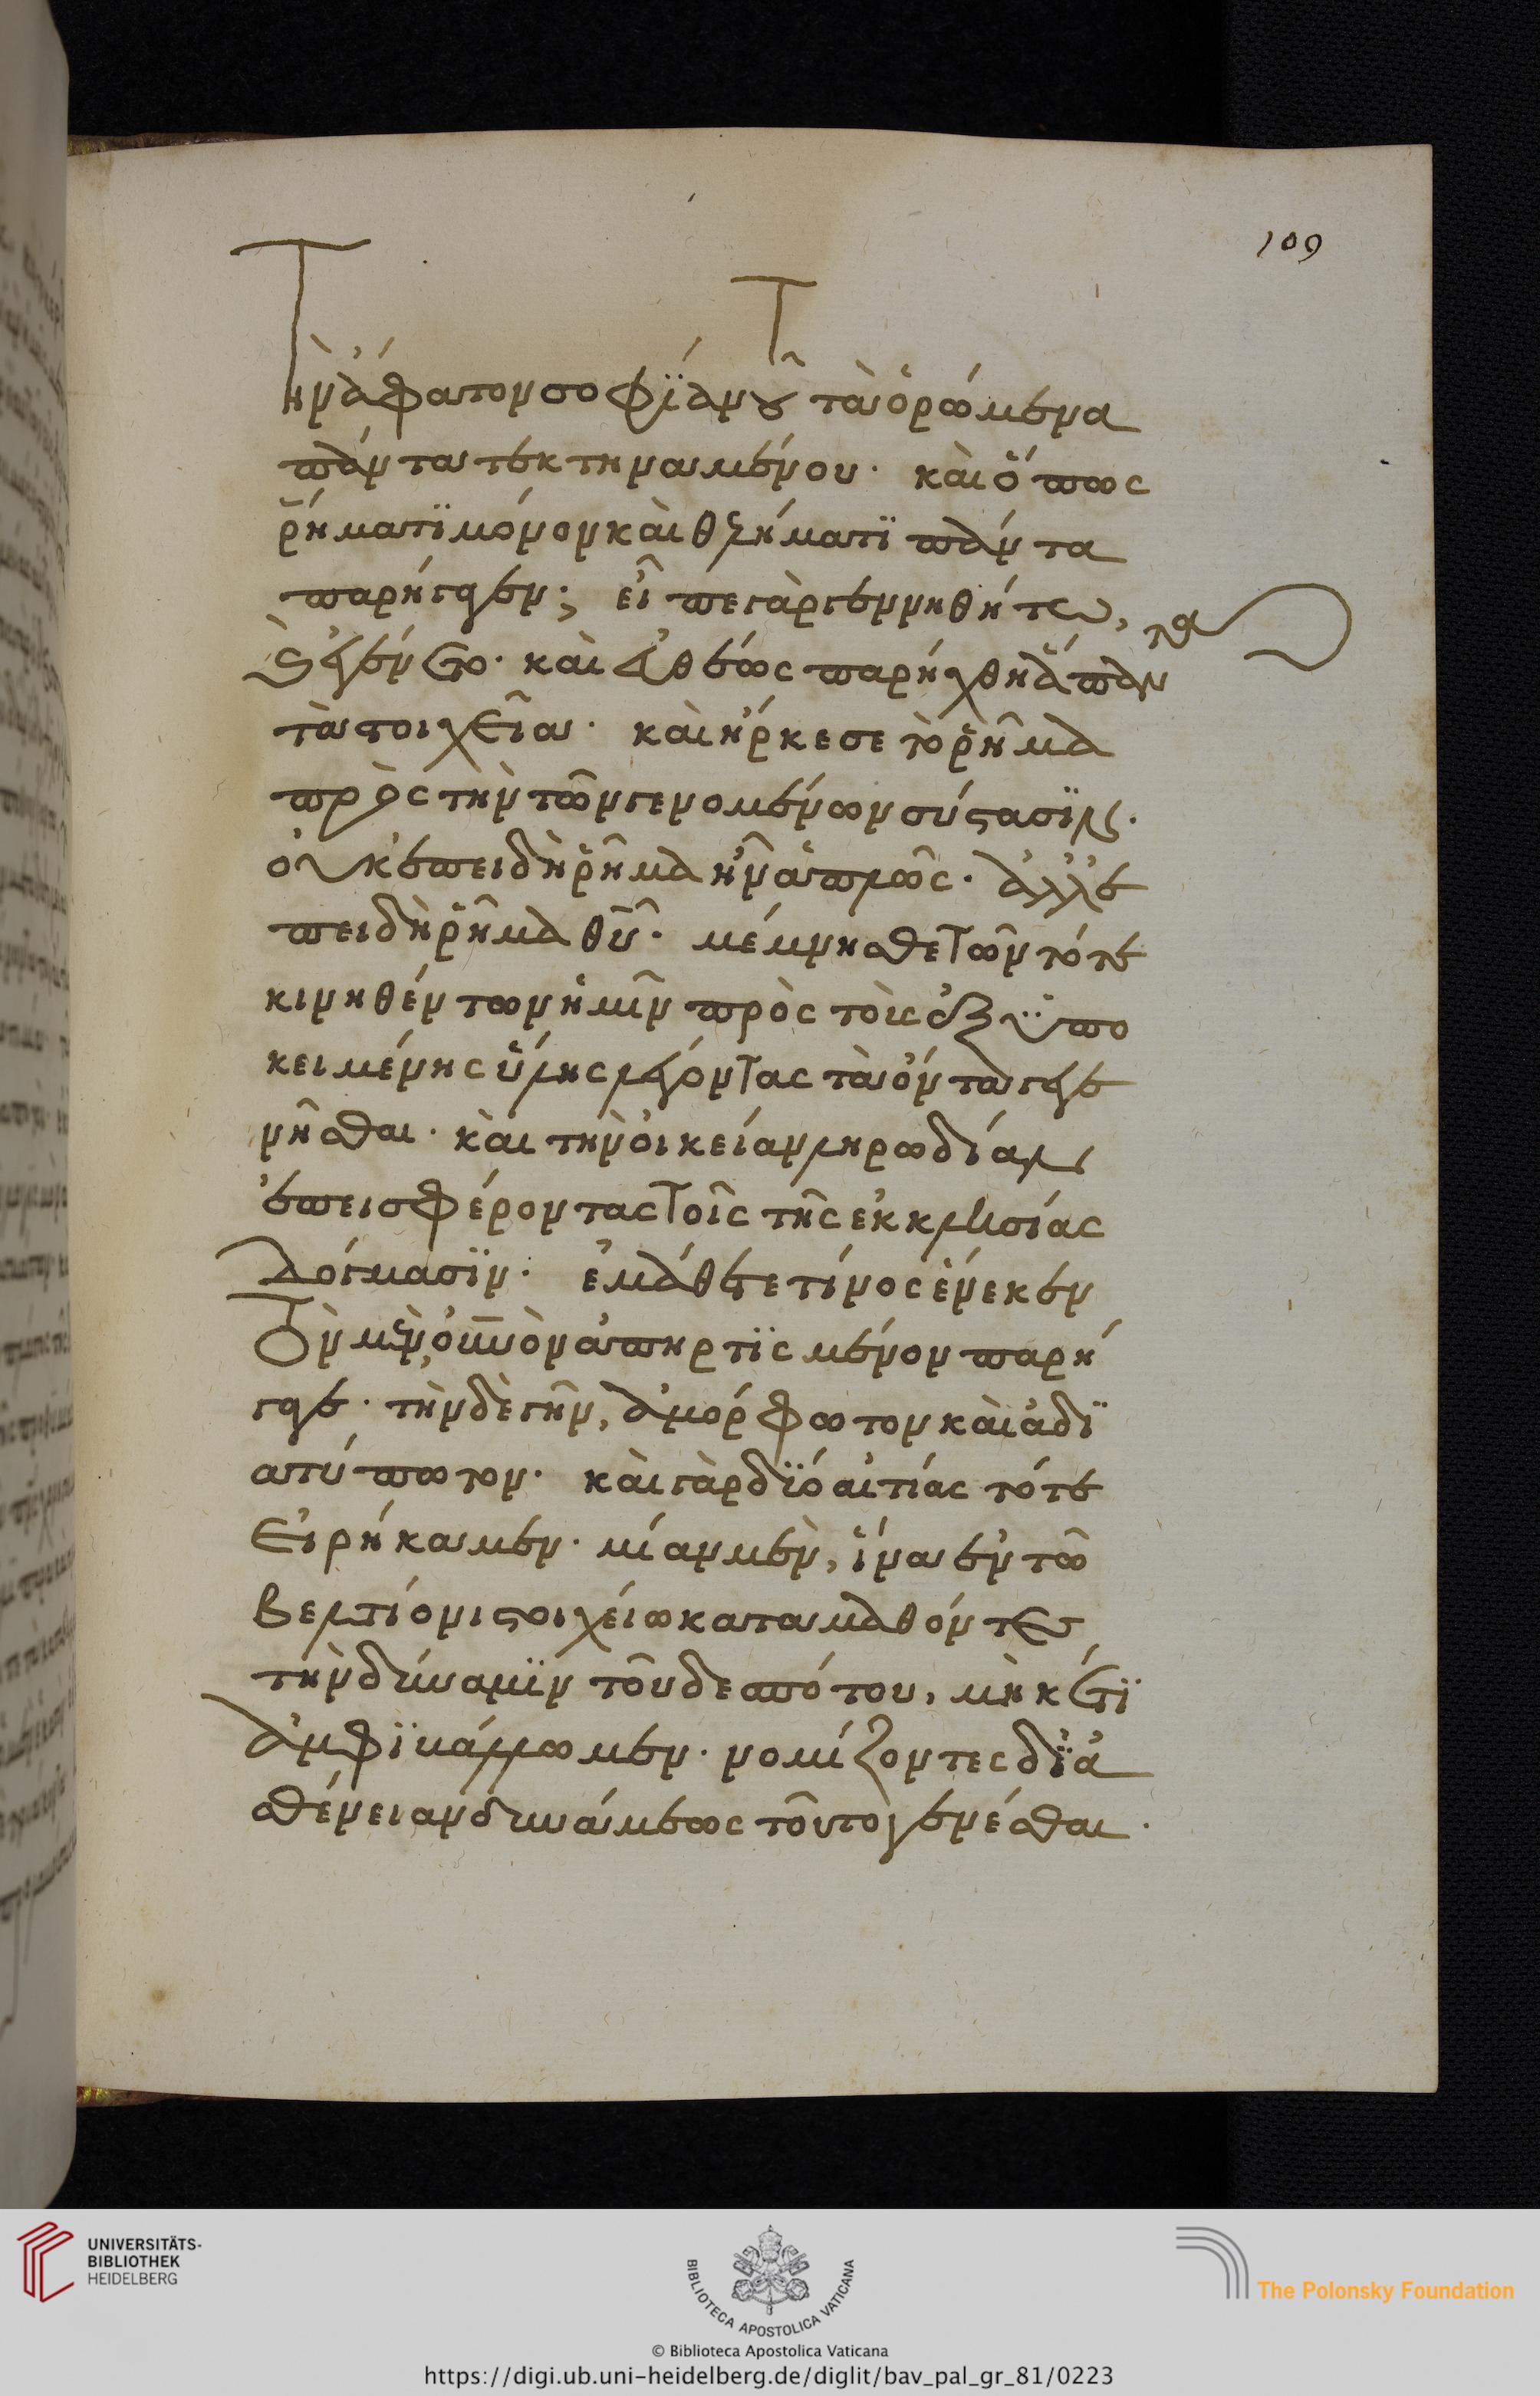 109
Τὴν ἄφατον σοφίαν τοῦ τὰ ὁρώμενα
πάντα τεκτηναμένου· καὶ ὅπως
ῥήματι μόνον καὶ θελήματι πάντα
παρήγαγεν; εἶπε γὰρ γεννηθήτω,
καὶ ἐγένετο· καὶ εὐθέως παρήχθη ἅπαντα
τὰ στοιχεῖα· καὶ ἤρκεσε τὸ ῥῆμα
πρὸς τὴν τῶν γενομένων σύστασιν·
οὐκ ἐπειδὴ ῥῆμα ἦν ἁπλῶς· ἀλλ' ἐ
πειδὴ ῥῆμα θῦ· μέμνησθε τῶν τότε
κινηθέντων ἡμῖν πρὸς τοὺς ἐξ ὑπο
κειμένης ὕλης λέγοντας τὰ ὄντα γεγε
νῆσθαι· καὶ τὴν οἰκείαν ληρωδίαν
ἐπεισφέροντας τοῖς τῆς ἐκκλησίας
δόγμασιν· ἐμάθετε τίνος ἕνεκεν
τὸν μὲν οὐνὸν ἀπηρτισμένον παρή
γαγε· τὴν δὲ γῆν, ἀμόρφωτον καὶ ἀδι
ατύπωτον· καὶ γὰρ δύο αἰτίας τότε
εἰρήκαμεν· μίαν μὲν, ἵνα ἐν τῶ
βελτίονι στοιχείω καταμαθόντες
τὴν δύναμιν τοῦ δεσπότου, μηκέτι
ἀμφιβάλλωμεν· νομίζοντες δι' ἀ
σθένειαν δυνάμεως τοῦτο γενέσθαι·
UNIVERSITÄTS-
BIBLIOTHEK
HEIDELBERG
BIBLIOTECA APOSTOLICA VATICANA
The Polonsky Foundation
© Biblioteca Apostolica Vaticana
https://digi.ub.uni-heidelberg.de/diglit/bav_pal_gr_81/0223